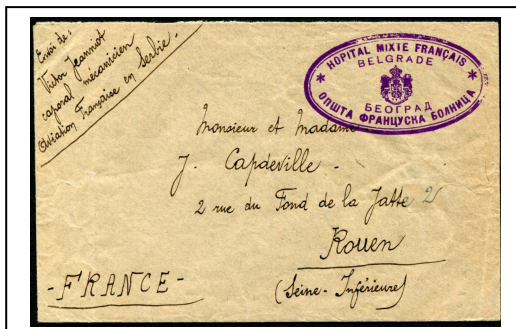 Envoi de:
Victor Jeanniot
caporal mécanicien
Aviation Française en Serbie.
HOPITAL MIXTE FRANÇAIS
BELGRADE
БЕОГРАД
ОПШТА ФРАНЦУСКА БОЛНИЦА
Monsieur et Madame
J. Capdeville.
2 rue du Fond de la Jatte 2
Rouen
- FRANCE -
(Seine-Inférieure)